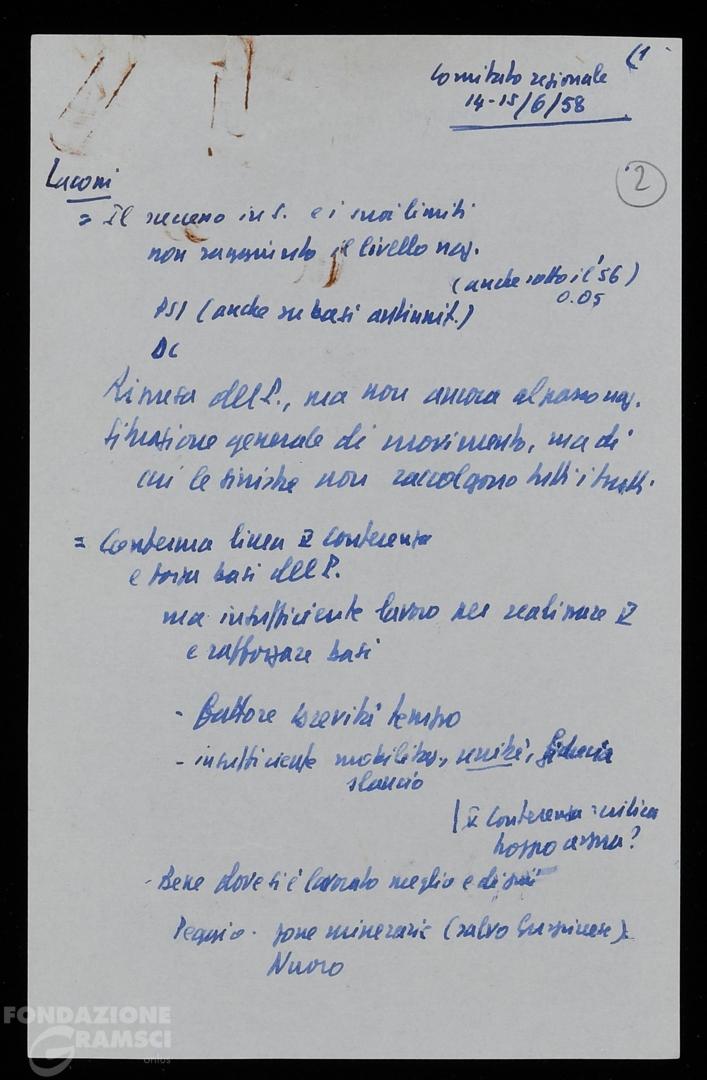 (1
Comitato regionale
14-15/6/58
2
Laconi
= Il successo in S. e i suoi limiti
non raggiunto il livello naz.
(anche sotto il '56)
0.05
PSI (anche su basi antiunit.)
DC
Ripresa del P., ma non ancora al passo naz.
Situazione generale di movimento, ma di
cui le sinistre non raccolgono tutti i frutti.
= Conferma linea V Conferenza
e forza basi del P.
ma insufficiente lavoro per realizzare V
e rafforzare basi
- fattore brevità tempo
- insufficiente mobilitaz., unità, fiducia
slancio
| V Conferenza : critica
troppo aspra?
- Bene dove si è lavorato meglio e di più
Peggio - zone minerarie (salvo Guspinese).
Nuoro
FONDAZIONE
GRAMSCI
onlus